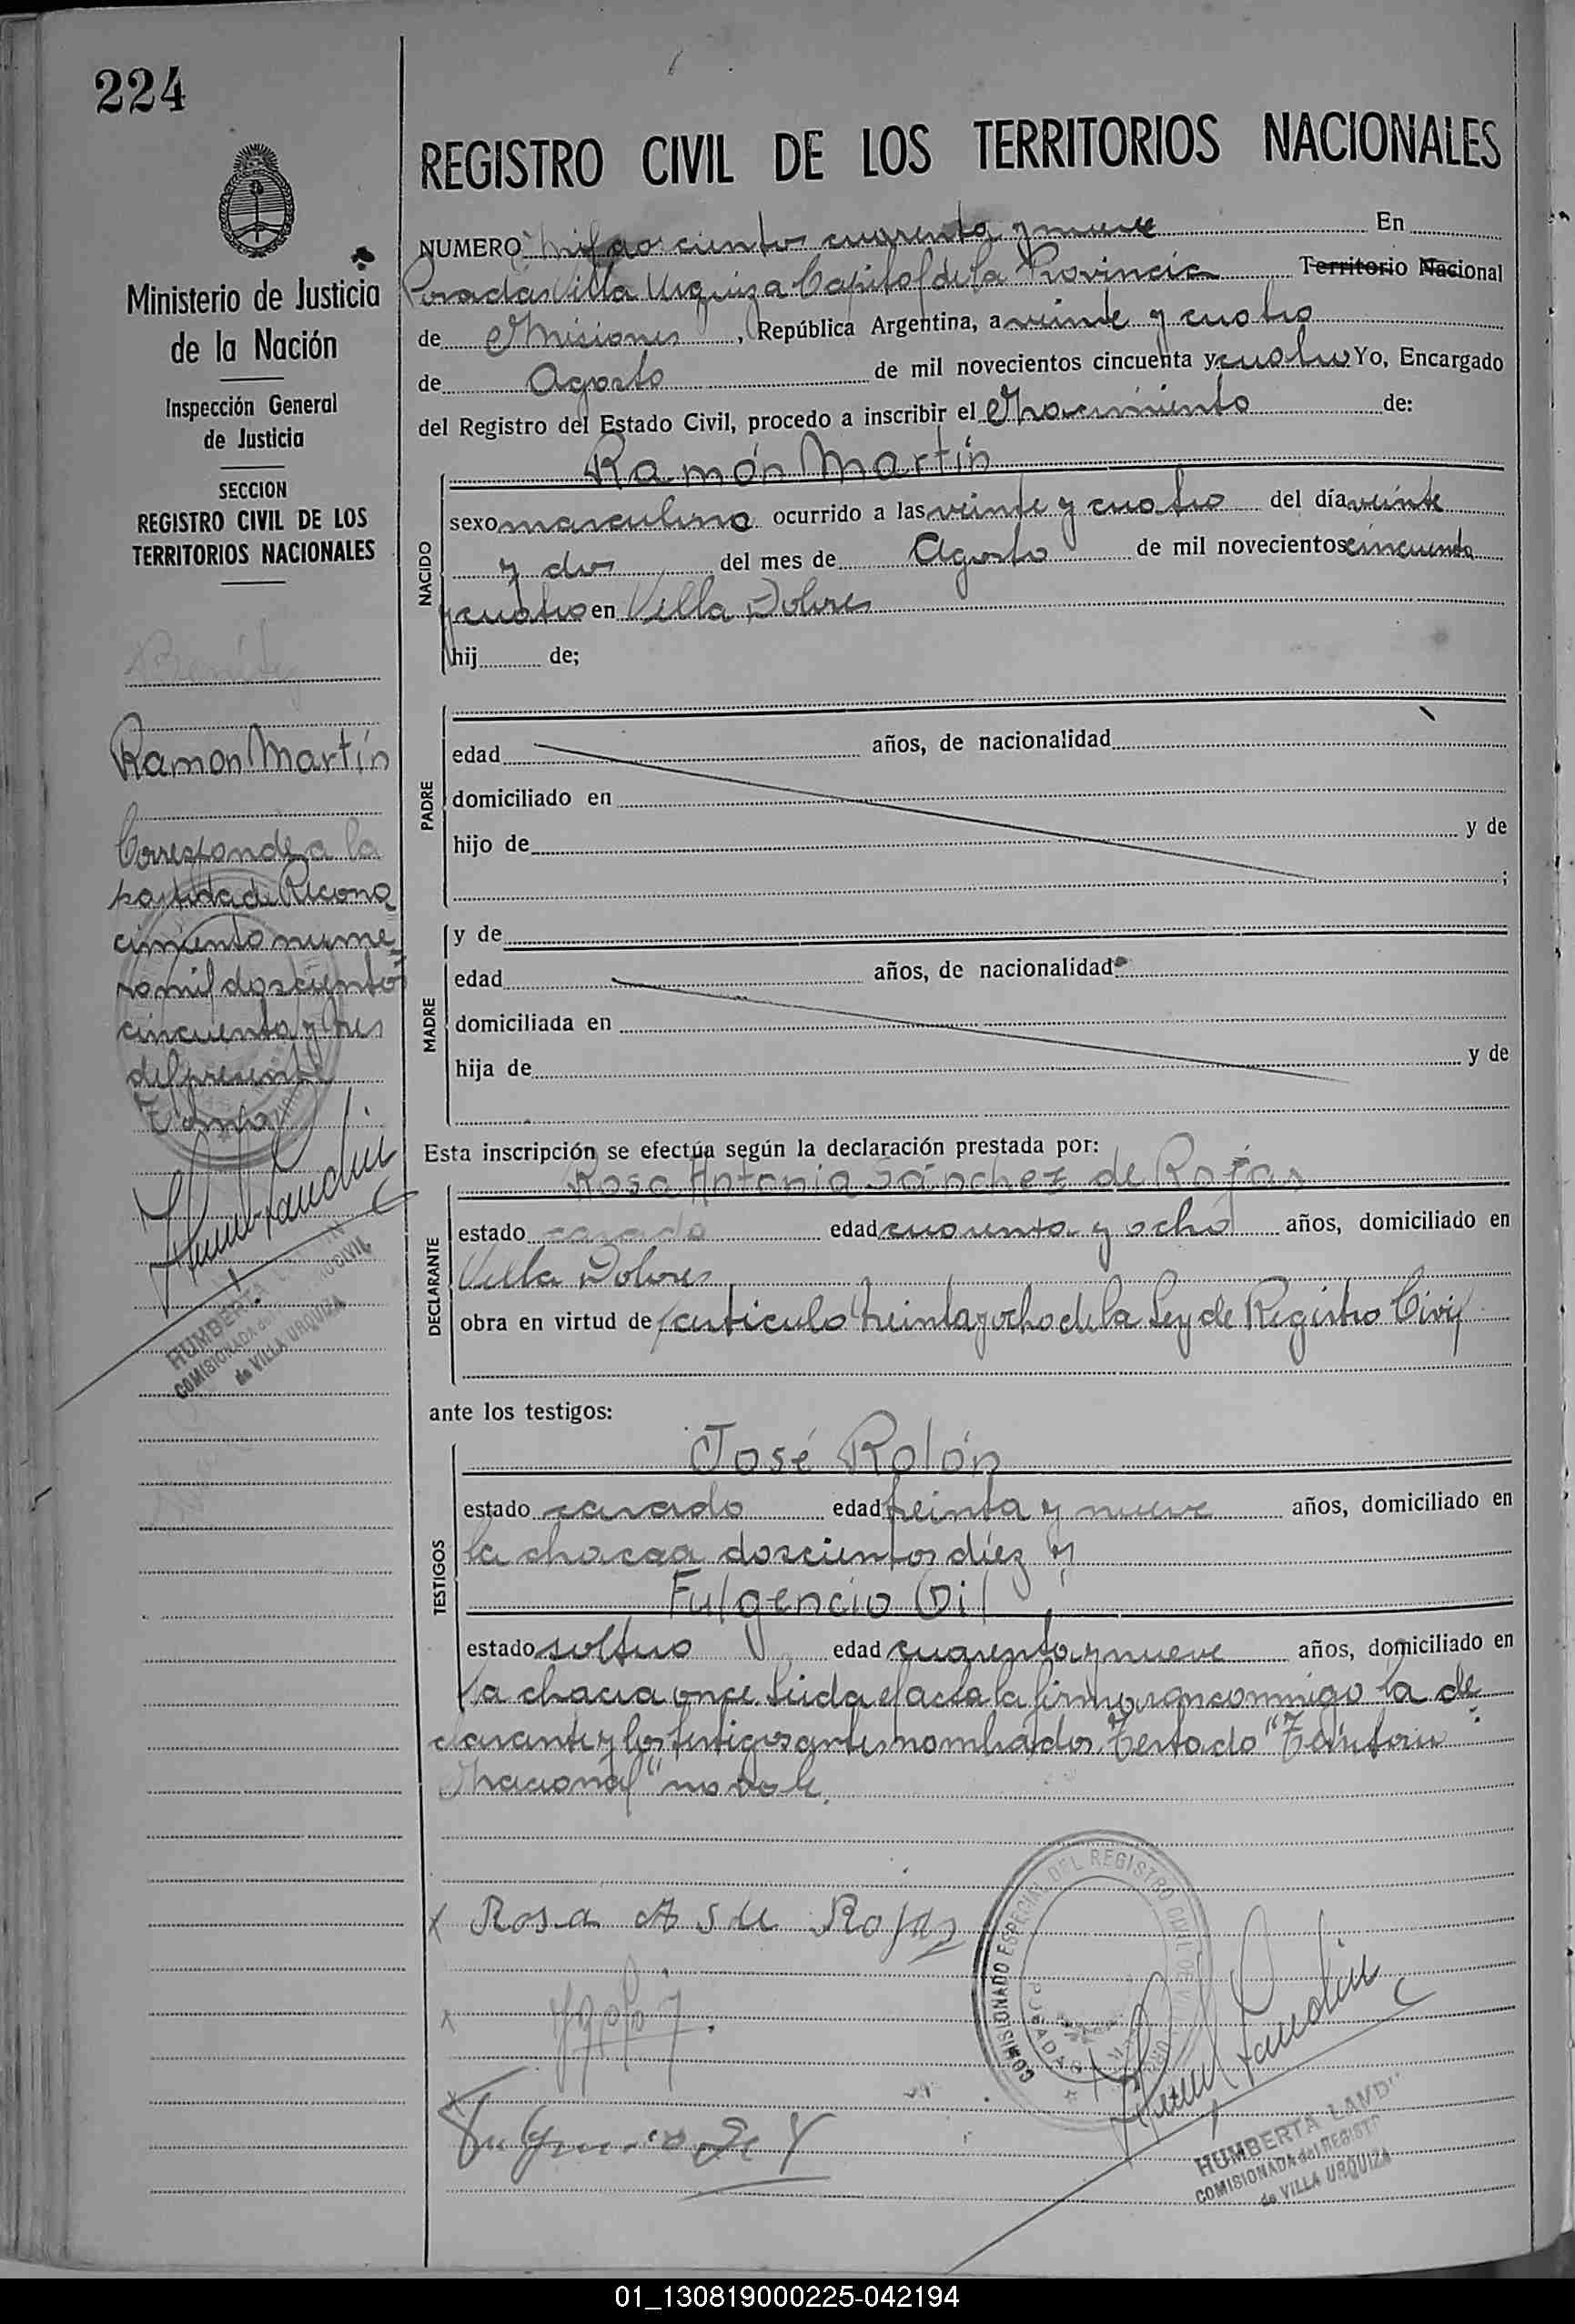 224
Ministerio de Justicia
de la Nación
Inspección General
de Justicia
SECCION
REGISTRO CIVIL DE LOS
TERRITORIOS NACIONALES
Benitez
Ramon Martín
Corresponde a la
partida de Recono
cimiento nume
ro mil doscientos
cincuenta y tres
del presente
Tomo
HUMBERTA
COMISIONADA del REGISTRO CIVIL
de VILLA URQUIZA
REGISTRO CIVIL DE LOS TERRITORIOS NACIONALES
NUMERO mil doscientos cuarenta y nueve En
Posadas Villa Urquiza Capital de la Provincia Territorio Nacional
de Misiones, República Argentina, a veinte y cuatro
de Agosto de mil novecientos cincuenta y cuatro Yo, Encargado
del Registro del Estado Civil, procedo a inscribir el Nacimiento de:
Ramón Martín
NACIDO
sexo masculino ocurrido a las veinte y cuatro del día veinte
y dos del mes de Agosto de mil novecientos cincuenta
y cuatro en Villa Dolores
hij de;
PADRE
edad años, de nacionalidad
domiciliado en
hijo de y de
;
MADRE
y de
edad años, de nacionalidad
domiciliada en
hija de y de
Esta inscripción se efectúa según la declaración prestada por:
Rosa Antonia Sánchez de Rojas
DECLARANTE
estado casada edad cuarenta y ocho años, domiciliado en
Villa Dolores
obra en virtud de articulo treinta y ocho de la Ley de Registro Civil
ante los testigos:
José Rolón
TESTIGOS
estado casado edad treinta y nueve años, domiciliado en
la chacra doscientos diez y
Fulgencio Gil
estado soltero edad cuarenta y nueve años, domiciliado en
la chacra once. Leida el acta la firmaron conmigo la de
clarante y los testigos antes nombrados. Testado "Territorio
Nacional" no vale.
x Rosa A S de Rojas
x
COMISIONADO ESPECIAL DEL REGISTRO CIVIL DE
POSADAS
HUMBERTA
COMISIONADA del REGISTRO
de VILLA URQUIZA
01_130819000225-042194